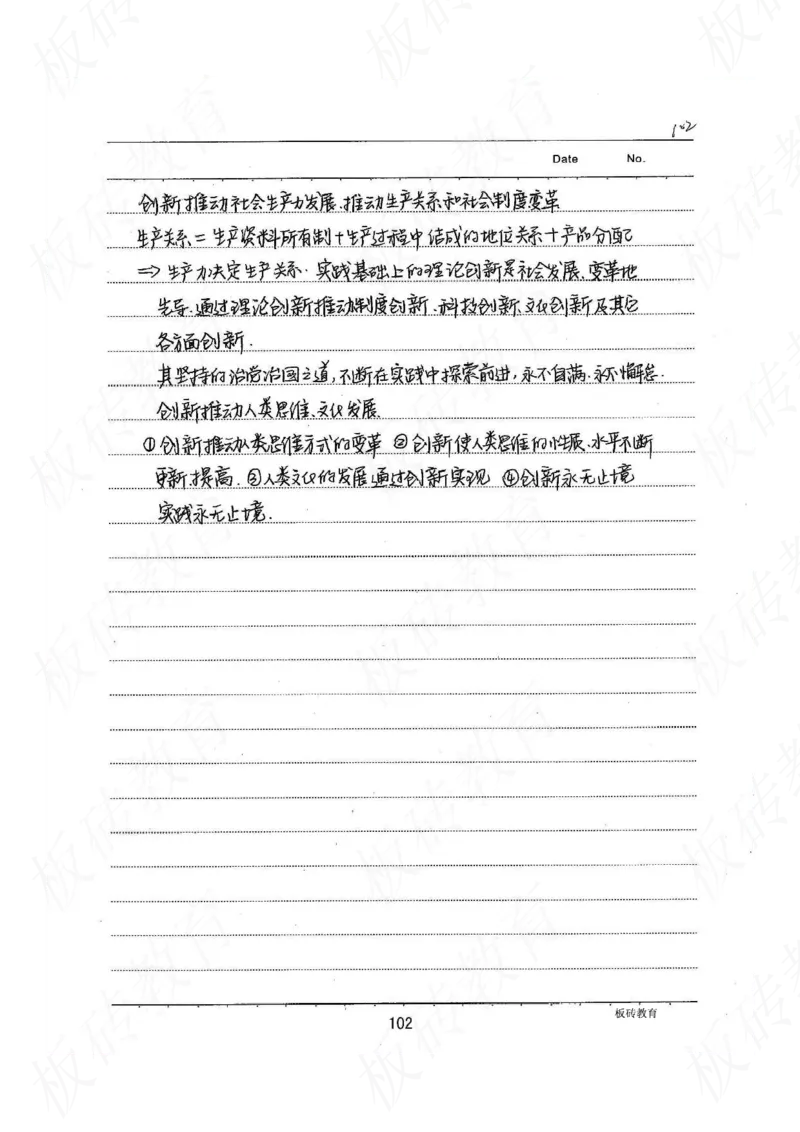 102
Date No.
创新推动社会生产力发展、推动生产关系和社会制度变革
生产关系=生产资料所有制+生产过程中结成的地位关系+产品分配
⇒生产力决定生产关系.实践基础上的理论创新是社会发展、变革地
先导.通过理论创新推动制度创新.科技创新.文化创新及其它
各方面创新.
其坚持的治党治国之道,不断在实践中探索前进,永不自满.永不懈怠.
创新推动人类思维、文化发展.
①创新推动人类思维方式的变革 ②创新使人类思维的性展、水平不断
更新提高.③人类文化的发展通过创新实现 ④创新永无止境
实践永无止境.
102
板砖教育